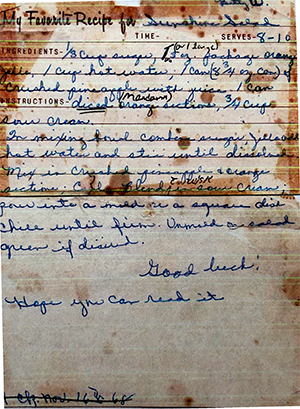 My Favorite Recipe for Sunshine Salad
TIME- SERVES- 8-10
INGREDIENTS- 1/3 cup sugar, 1 3 oz. package orange
(or 1 large)
jello, 1 cup hot water, 1 can (8 3/4 oz can)
crushed pineapple with juice, 1 can
(Mandarin)
INSTRUCTIONS- diced orange sections, 3/4 cup
sour cream.
In mixing bowl combine sugar, jello
hot water and stir until dissolved.
Mix in crushed pineapple & orange
sections. Cool. Blend in sour cream,
pour into a mold or a square dish
chill until firm. Unmold on salad
green if desired.
Good luck!
Hope you can read it